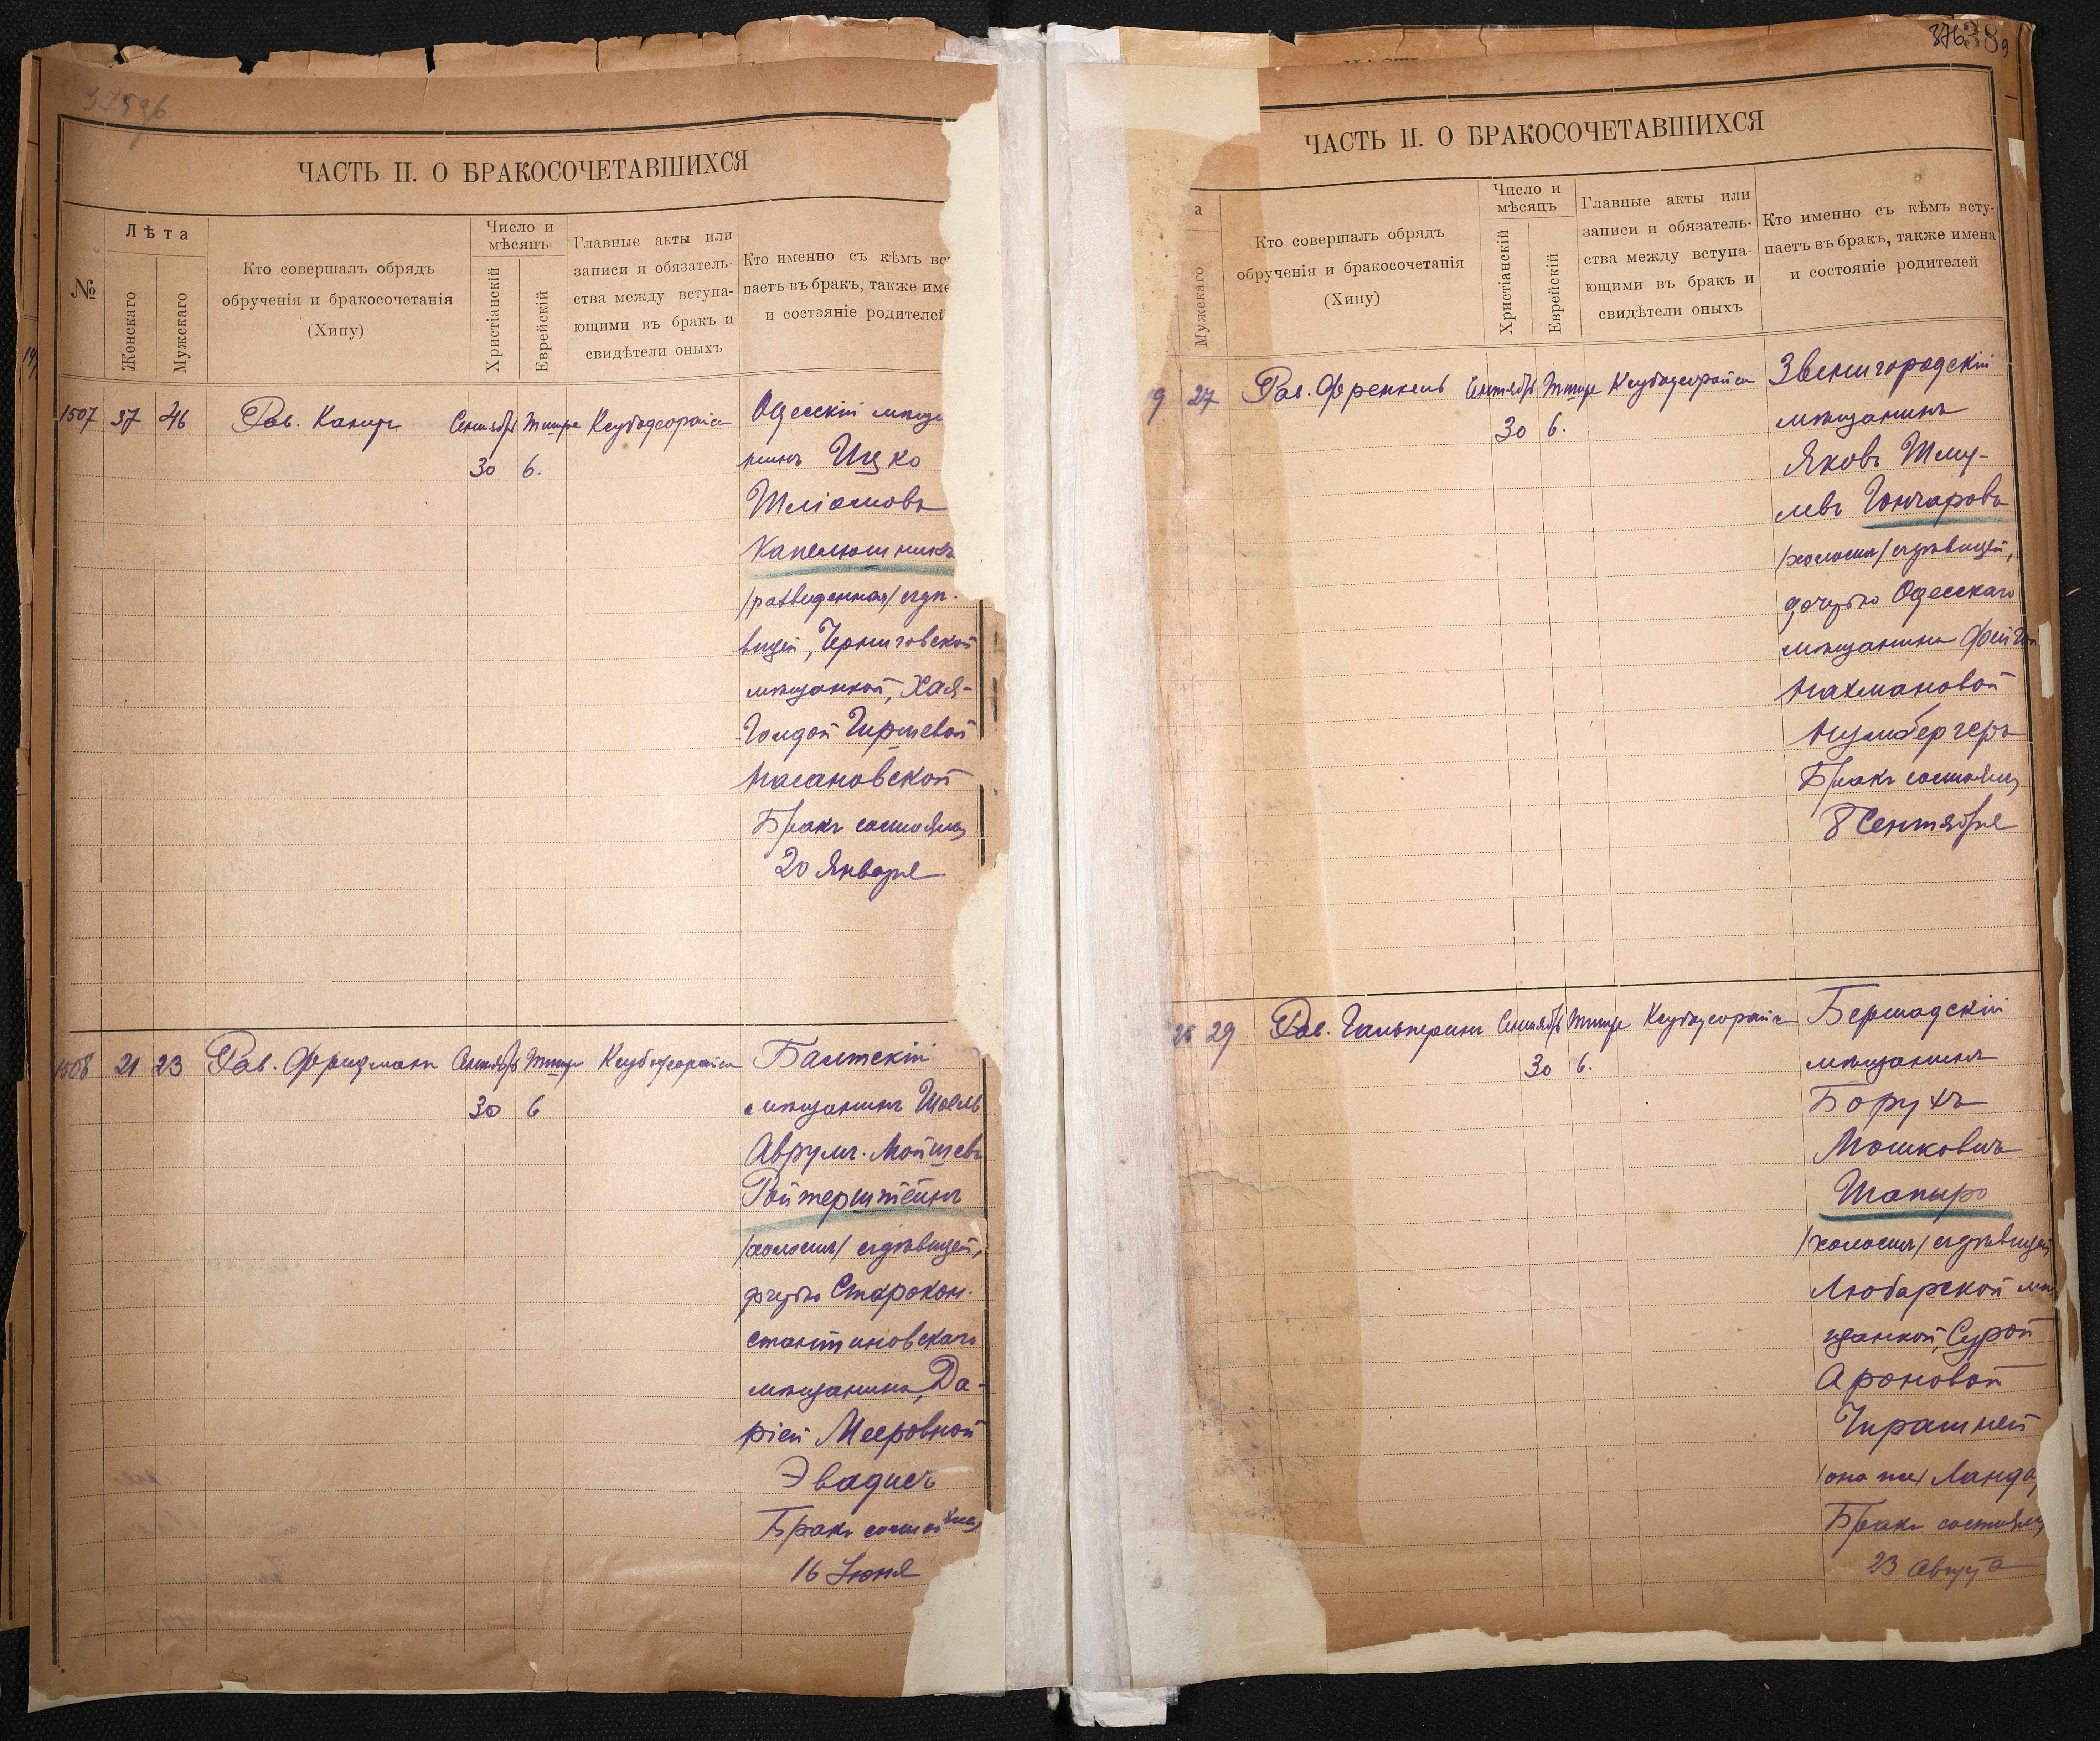 ЧАСТЬ II. О БРАКОСОЧЕТАВШИХСЯ
№
Лѣта
Женскаго
Мужскаго
Кто совершалъ обрядъ
обрученія и бракосочетанія
(Хипу)
Число и
мѣсяцъ
Христіанскій
Еврейскій
Главные акты или
записи и обязатель-
ства между вступа-
ющими въ бракъ и
свидѣтели оныхъ
Кто именно съ кѣмъ вс
паетъ въ бракъ, также име
и состояніе родителей
1507 37 46
Рав.
Сентябр Тишре
30 6.
Одесскій мѣща
нинъ Ицко
Шліомовъ
Капелюшникъ
/разведенная/ съ дѣ-
вицей, Черниговской
мѣщанкой, Хая-
Голдой Гиршевой
Насановской
Бракъ состоялся
20 Января
1508 21 23
Рав. Фридманъ
Сентябр Тишре
30 6
Балтскій
мѣщанинъ Шоель
Аврумъ-Мойшевъ
Ройтерштейнъ
/холосты/ съ дѣвицей,
дочерью Старокон-
стантиновскаго
мѣщанина, Да-
ріей Мееровной
Эвадисъ
Бракъ состоялся
16 Іюня
ЧАСТЬ II. О БРАКОСОЧЕТАВШИХСЯ
а
Мужскаго
Кто совершалъ обрядъ
обрученія и бракосочетанія
(Хипу)
Число и
мѣсяцъ
Христіанскій
Еврейскій
Главные акты или
записи и обязатель-
ства между вступа-
ющими въ бракъ и
свидѣтели оныхъ
Кто именно съ кѣмъ всту-
паетъ въ бракъ, также имена
и состояніе родителей
9 27
Рав. Френкель
Сентябр Тишре
30 6.
Звенигородскій
мѣщанинъ
Яковъ Шму-
левъ Гончаровъ
/холосты/ съ дѣвицей,
дочерью Одесскаго
мѣщанина Фейгой
Нахмановой
Нумбергеръ
Бракъ состоялся
8 Сентября
29
Рав. Гальперинъ
Сентябр Тишре
30 6.
Бершадскій
мѣщанинъ
Борухъ
Мошковичъ
Шапыро
/холосты/ съ дѣвицей
Любарской мѣ
щанкой, Сурой
Ароновой
(она же) Ланда,
Бракъ состоялся
23 Августа